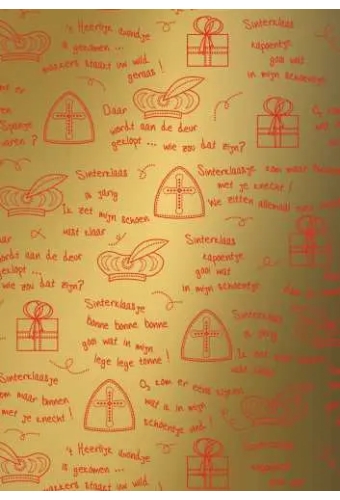 't Heerlije avondje
is gekomen ...
makkers staakt uw wild
geraas !
Sinterklaas
kapoentje
gooi wat
in mijn schoentje
Daar
wordt aan de deur
geklopt ... wie zou dat zijn?
Sinterklaas
is jarig
Ik zet mijn schoen
vast klaar
Sinterklaasje kom maar binnen
met je knecht !
We zitten allemaal
aan de deur
geklopt ...
wie zou dat zijn?
Sinterklaas
kapoentje
gooi wat
in mijn schoentje
Sinterklaasje
bonne bonne bonne
gooi wat in mijn
lege lege tonne !
Sinterklaas
is jarig
Sinterklaasje
kom maar binnen
met je knecht !
O, kom er eens kijken
wat ik in mijn
schoentje vind !
't Heerlije avondje
is gekomen ...
makkers staakt uw wild